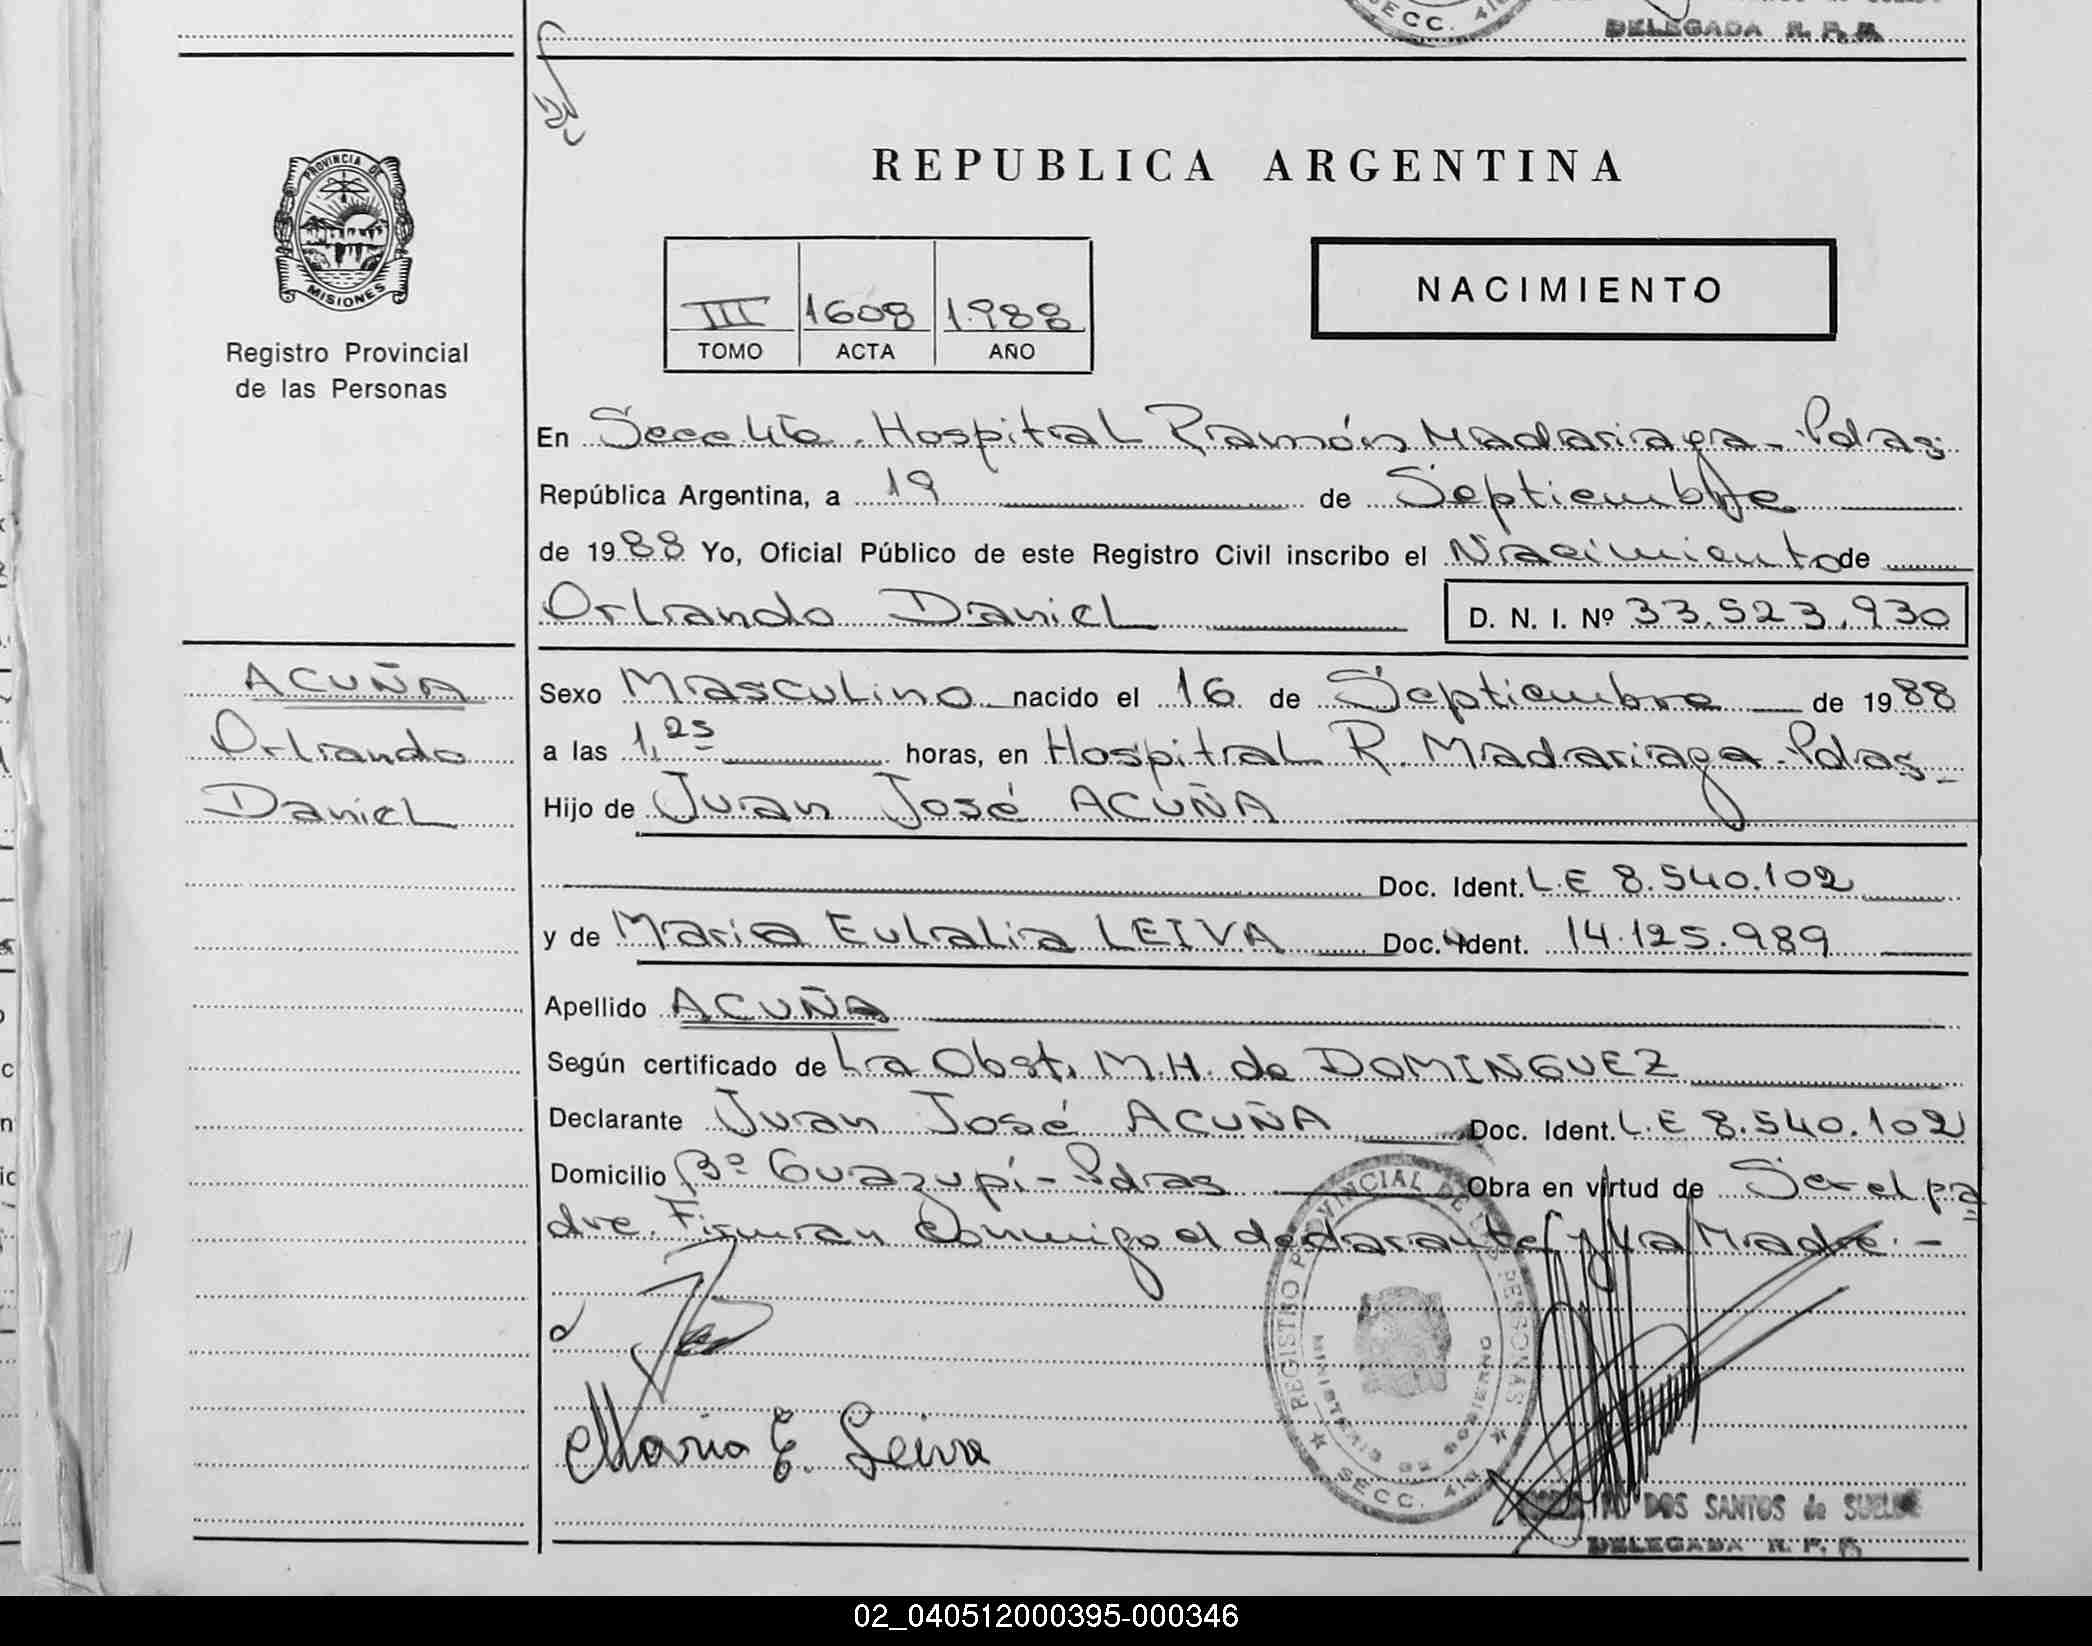 SECC. 41
DELEGADA R. P. P.
REPUBLICA ARGENTINA
PROVINCIA DE
MISIONES
Registro Provincial
de las Personas
III 1608 1.988
TOMO ACTA AÑO
NACIMIENTO
En Secc 41a. Hospital Ramón Madariaga - Pdas.
República Argentina, a 19 de Septiembre
de 1988 Yo, Oficial Público de este Registro Civil inscribo el Nacimiento de
Orlando Daniel D. N. I. Nº 33.523.930
ACUÑA
Orlando
Daniel
Sexo Masculino nacido el 16 de Septiembre de 1988
a las 1,25 horas, en Hospital R. Madariaga - Pdas -
Hijo de Juan José ACUÑA
Doc. Ident. L.E 8.540.102
y de Maria Eulalia LEIVA Doc. Ident. 14.125.989
Apellido ACUÑA
Según certificado de La Obst. M.H. de DOMINGUEZ
Declarante Juan José ACUÑA Doc. Ident. L.E 8.540.102
Domicilio Bº Guazupí - Pdas Obra en virtud de Ser el pa
dre. Firman conmigo el declarante y la Madre. -
Maria E. Leiva
REGISTRO PROVINCIAL DE LAS PERSONAS
MINISTERIO DE GOBIERNO
SECC. 41a
DOS SANTOS de SUELDO
DELEGADA R. P. P.
02_040512000395-000346